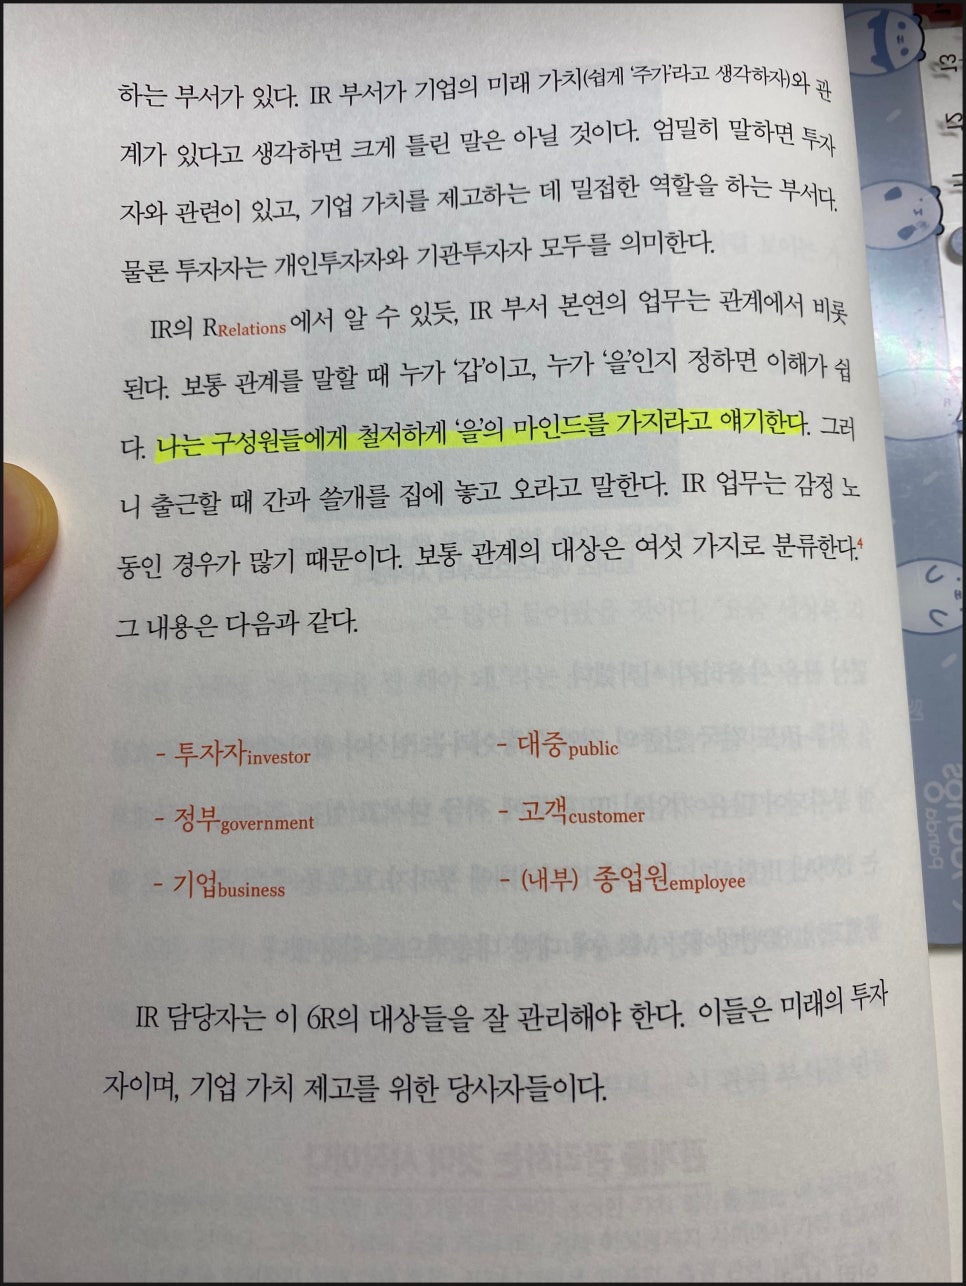 하는 부서가 있다. IR 부서가 기업의 미래 가치(쉽게 ‘주가’라고 생각하자)와 관
계가 있다고 생각하면 크게 틀린 말은 아닐 것이다. 엄밀히 말하면 투자
자와 관련이 있고, 기업 가치를 제고하는 데 밀접한 역할을 하는 부서다.
물론 투자자는 개인투자자와 기관투자자 모두를 의미한다.
IR의 RRelations에서 알 수 있듯, IR 부서 본연의 업무는 관계에서 비롯
된다. 보통 관계를 말할 때 누가 ‘갑’이고, 누가 ‘을’인지 정하면 이해가 쉽
다. 나는 구성원들에게 철저하게 ‘을’의 마인드를 가지라고 얘기한다. 그러
니 출근할 때 간과 쓸개를 집에 놓고 오라고 말한다. IR 업무는 감정 노
동인 경우가 많기 때문이다. 보통 관계의 대상은 여섯 가지로 분류한다.4
그 내용은 다음과 같다.
- 투자자investor - 대중public
- 정부government - 고객customer
- 기업business - (내부) 종업원employee
IR 담당자는 이 6R의 대상들을 잘 관리해야 한다. 이들은 미래의 투자
자이며, 기업 가치 제고를 위한 당사자들이다.